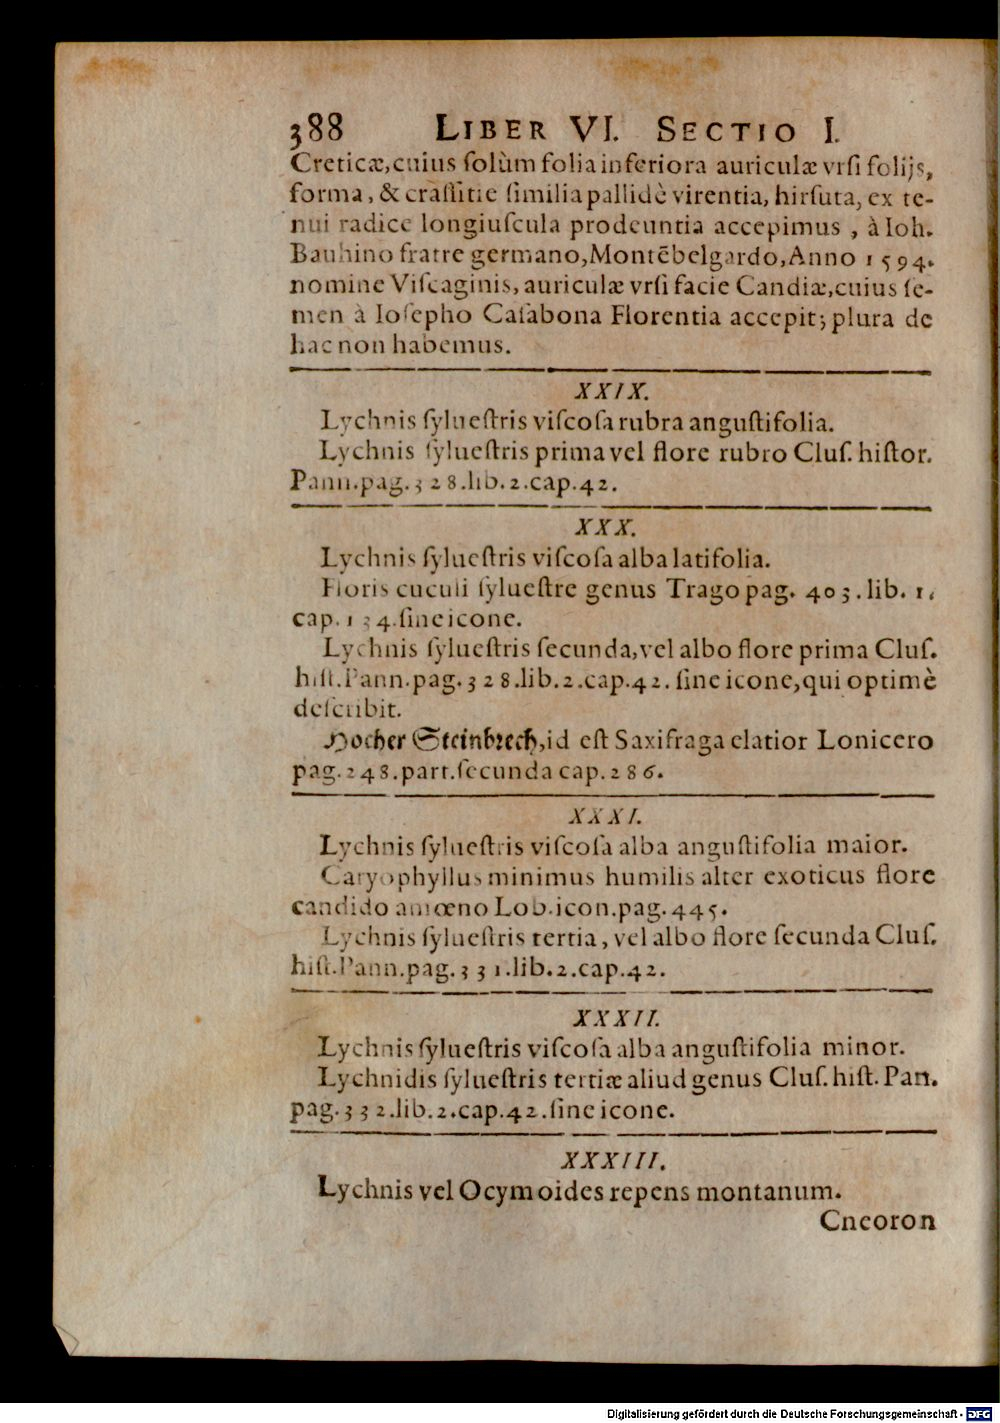 388 LIBER VI. SECTIO I.
Creticæ,cuius ſolùm folia inferiora auriculæ vrſi folijs,
forma, & craſſitie ſimilia pallidè virentia, hirſuta, ex te-
nui radice longiuſcula prodeuntia accepimus, à Ioh.
Bauhino fratre germano, Montẽbelgardo, Anno 1594.
nomine Viſcaginis, auriculæ vrſi facie Candiæ, cuius ſe-
men à Ioſepho Caſabona Florentia accepit; plura de
hac non habemus.
XXIX.
Lychnis ſylueſtris viſcoſa rubra anguſtifolia.
Lychnis ſylueſtris prima vel flore rubro Cluſ. hiſtor.
Pann.pag.328.lib.2.cap.42.
XXX.
Lychnis ſylueſtris viſcoſa alba latifolia.
Floris cuculi ſylueſtre genus Trago pag. 403. lib. 1.
cap. 134. ſine icone.
Lychnis ſylueſtris ſecunda, vel albo flore prima Cluſ.
hiſt.Pann.pag.328.lib.2.cap.42. ſine icone, qui optimè
deſcribit.
Hocher Steinbrech, id eſt Saxifraga elatior Lonicero
pag.248.part.ſecunda cap.286.
XXXI.
Lychnis ſylueſtris viſcoſa alba anguſtifolia maior.
Caryophyllus minimus humilis alter exoticus flore
candido amœno Lob.icon.pag.445.
Lychnis ſylueſtris tertia, vel albo flore ſecunda Cluſ.
hiſt.Pann.pag.331.lib.2.cap.42.
XXXII.
Lychnis ſylueſtris viſcoſa alba anguſtifolia minor.
Lychnidis ſylueſtris tertiæ aliud genus Cluſ. hiſt. Pan.
pag.332.lib.2.cap.42.ſine icone.
XXXIII.
Lychnis vel Ocymoides repens montanum.
Cneoron
Digitalisierung gefördert durch die Deutsche Forschungsgemeinschaft - DFG